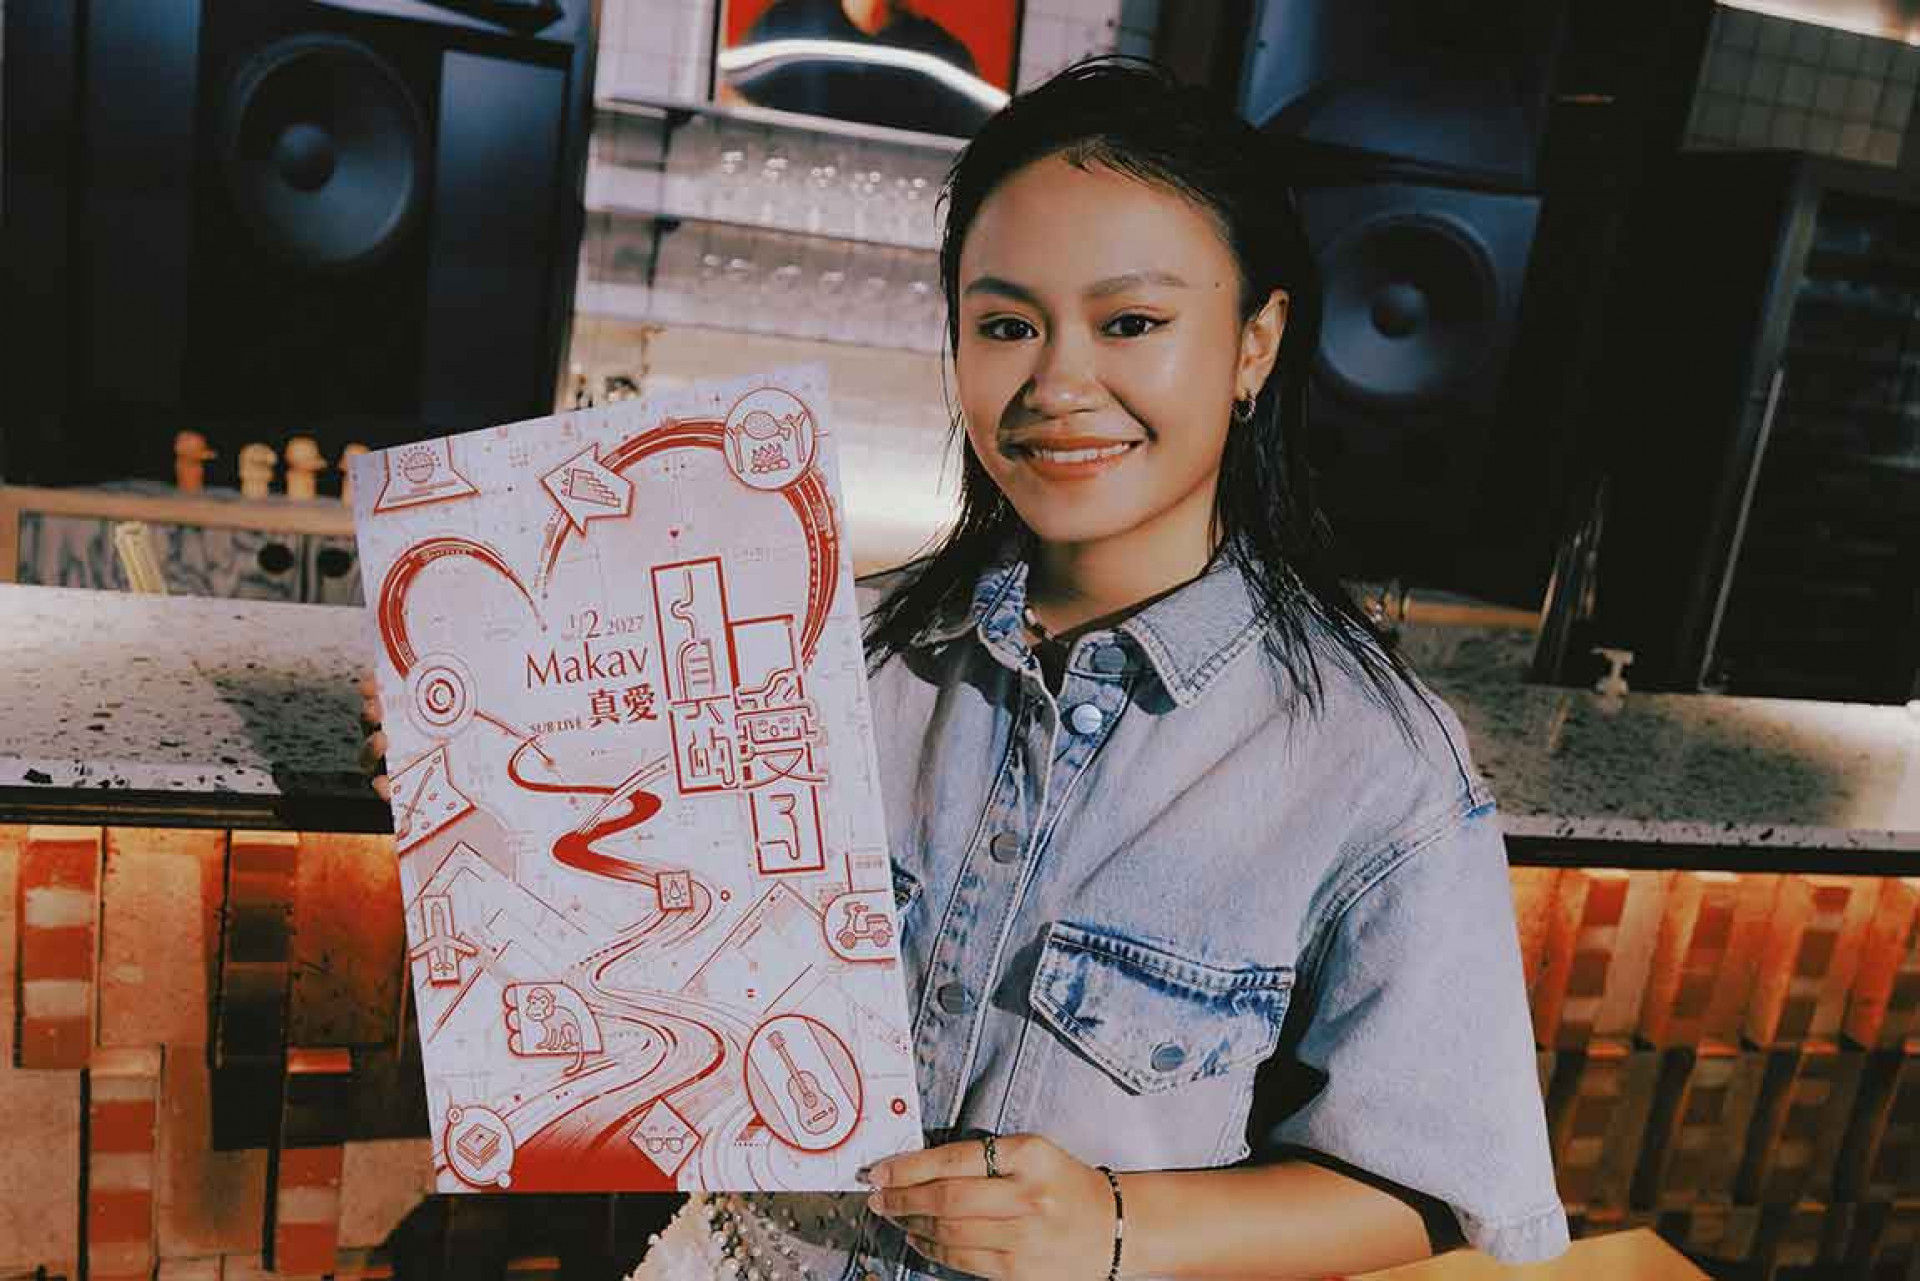 1/2 2027
Makav
真愛
SUB LIVE
真的愛了